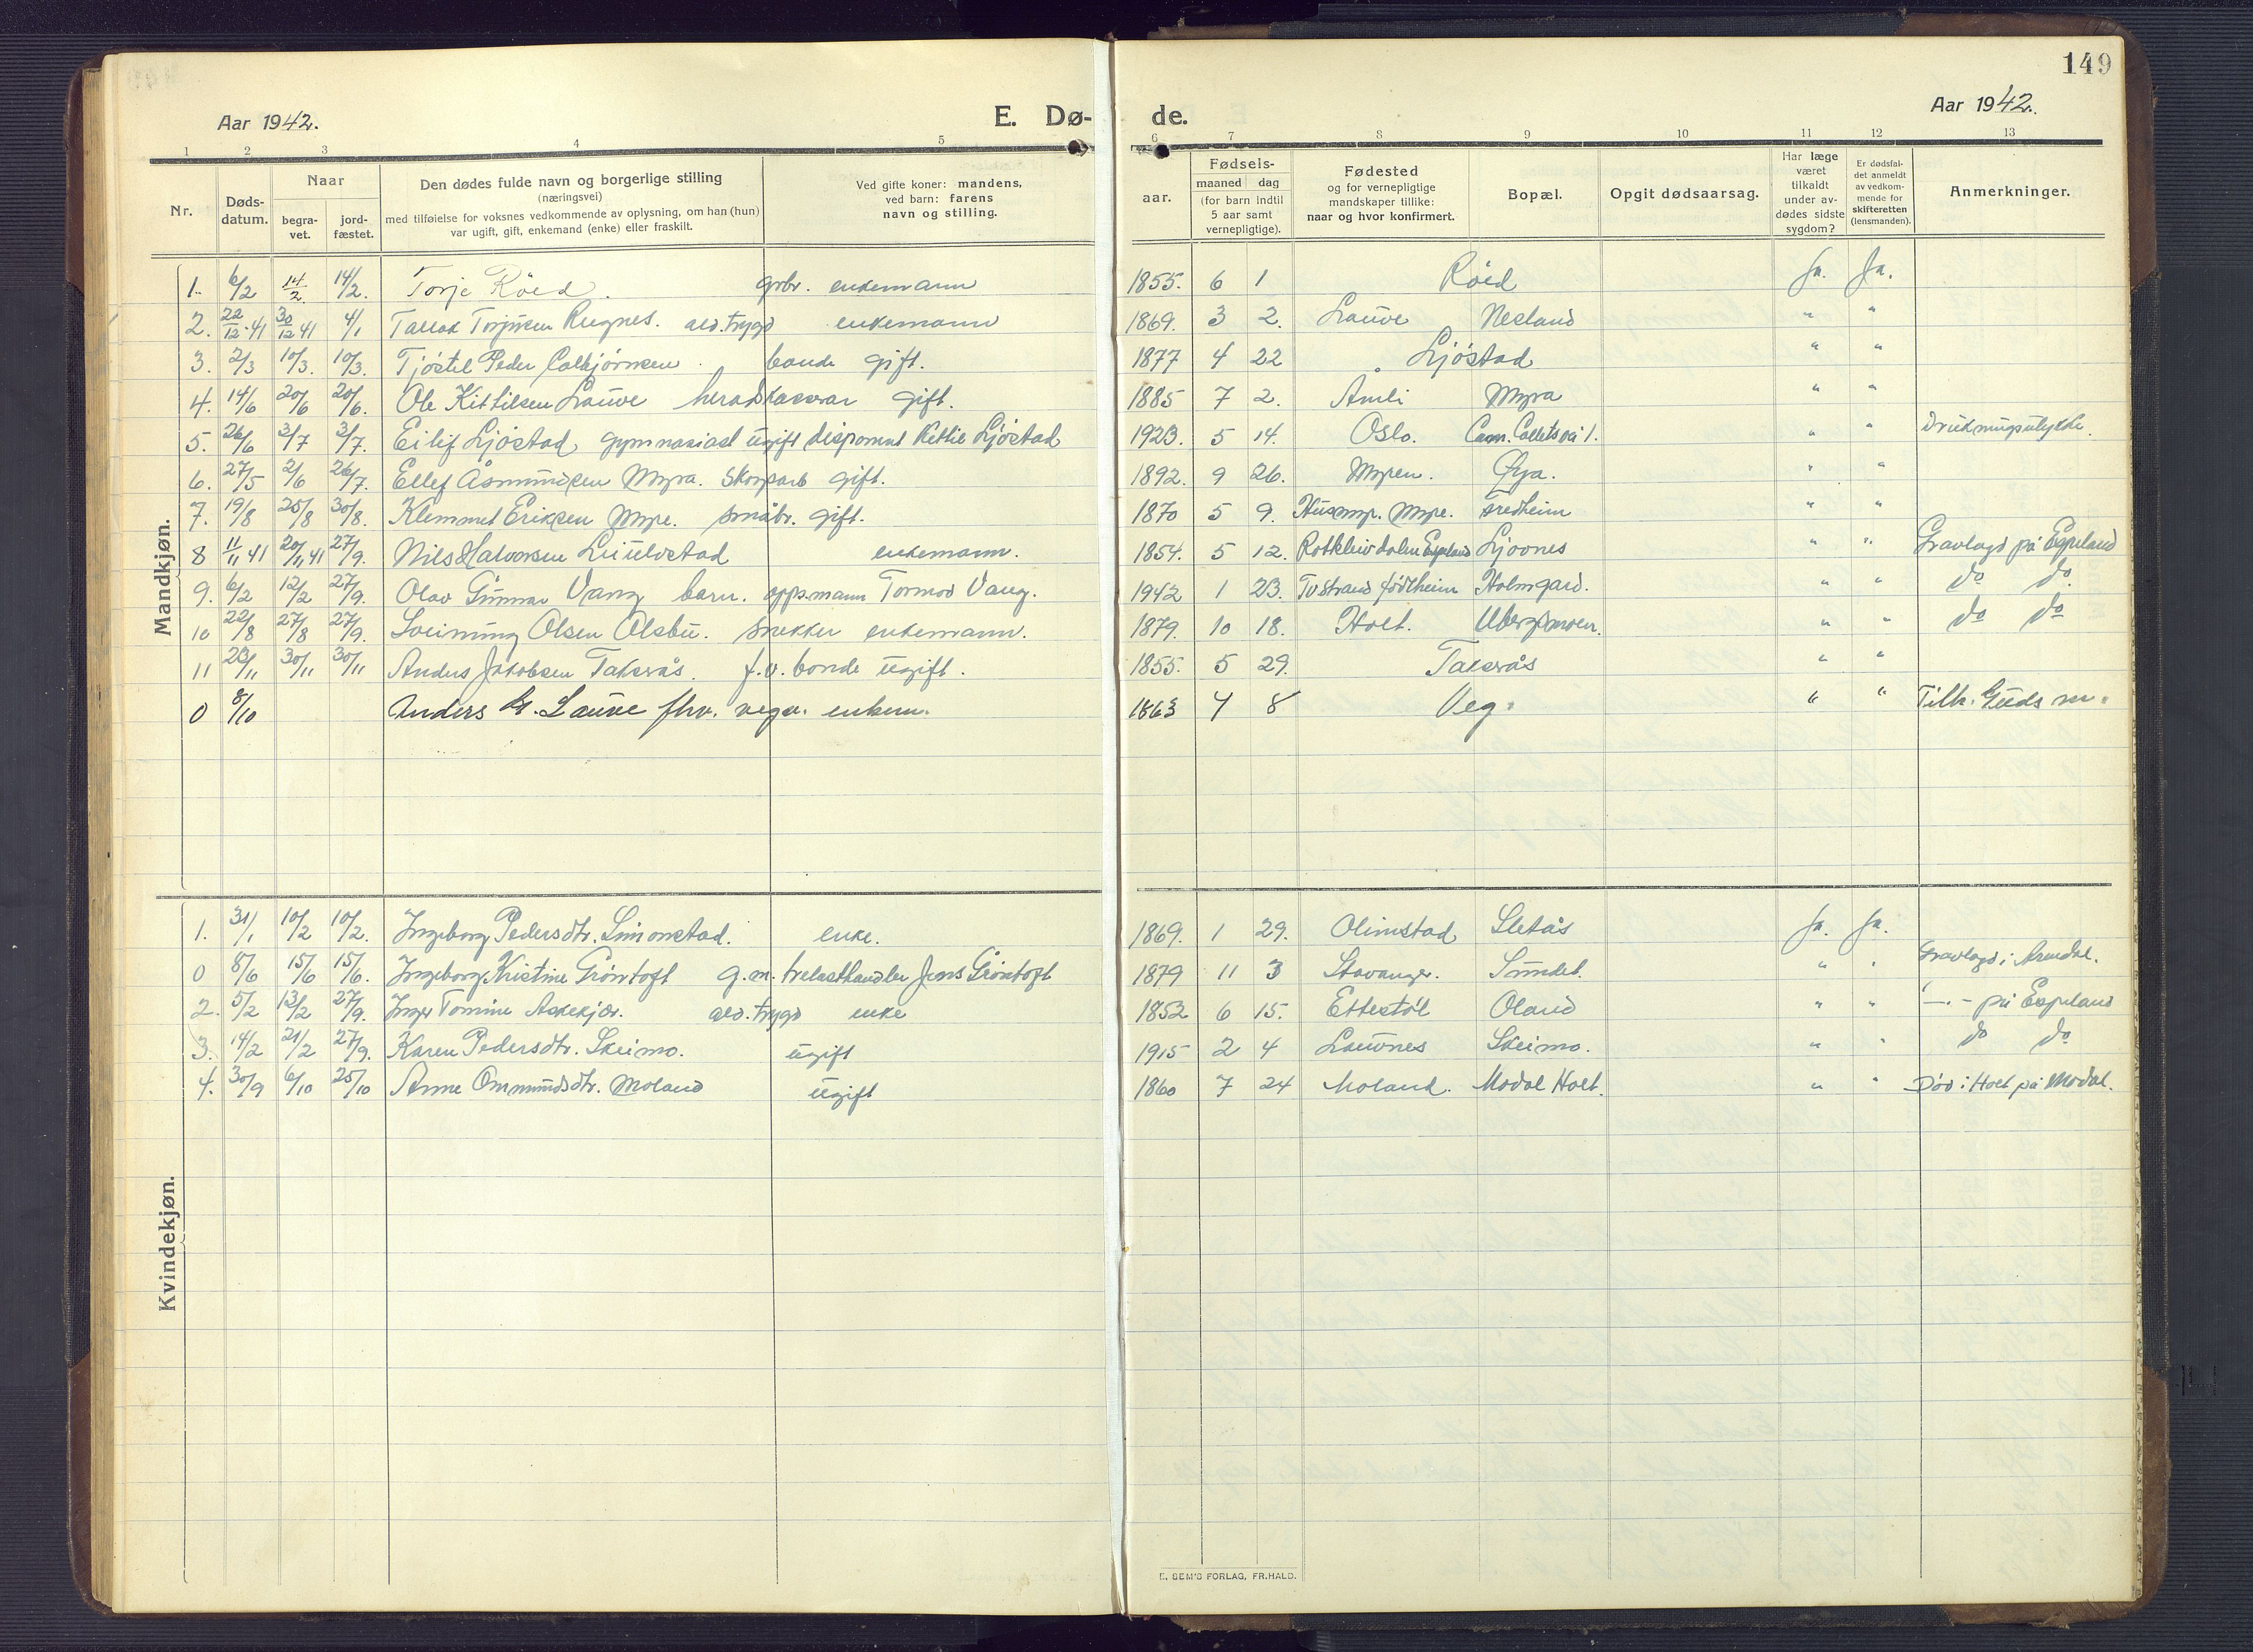 149
Aar 1942.
E. Dø-
de.
Aar 1942.
1 2 3 4 5 6 7 8 9 10 11 12 13
Nr.
Døds-
datum.
Naar
begra-
vet.
jord-
fæstet.
Den dødes fulde navn og borgerlige stilling
(næringsvei)
med tilføielse for voksnes vedkommende av oplysning, om han (hun)
var ugift, gift, enkemand (enke) eller fraskilt.
Ved gifte koner: mandens,
ved barn: farens
navn og stilling.
aar.
Fødsels-
maaned dag
(for barn indtil
5 aar samt
vernepligtige).
Fødested
og for vernepligtige
mandskaper tillike:
naar og hvor konfirmert.
Bopæl.
Opgit dødsaarsag.
Har læge
været
tilkaldt
under av-
dødes sidste
sygdom?
Er dødsfal-
det anmeldt
av vedkom-
mende for
skifteretten
(lensmanden).
Anmerkninger.
Mandkjøn.
1. 6/2 14/2 14/2. Torje Röed. grbr. enkemann 1855. 6 1 Röed Ja. Ja.
2. 22/12-41 30/12 41 4/1 Tallak Torjusen Rugnes. ald.trygd enkemann 1869. 3 2. Lauve Nesland " "
3. 2/3 10/3. 10/3. Tjöstel Peder Calbjörnsen. bonde gift. 1877 4 22 Ljöstad " "
4. 14/6 20/6 20/6. Ole Kittilsen Lauve heradkasserar gift. 1885 7 2. Åmli Myra " "
5. 26/6 3/7 3/7. Eilif Ljöstad gymnasiast ugift disponent Kettil Ljöstad 1923. 5 14. Oslo. Cam. Colletts vei 1. " " Drukningsulykke.
6. 27/5 2/6 26/7. Ellef Åsmundsen Myra. skogsarb gift. 1892. 9 26. Myren. Øya. " "
7. 19/8 25/8 30/8. Klemmet Eriksen Myre. småbr. gift. 1870 5 9. Husmpl. Myre. Fredheim " "
8 11/11 41 20/11 41 27/9. Nils Halvorsen Luulvstad enkemann. 1854. 5 12. Ljovnes " " Gravlagd på Espeland
9. 6/2 12/2 27/9. Olav Gunnar Vang barn. opps.mann Tormod Vang. 1942 1 23. Tvedestrand födeheim Holmgard. " " do do.
10 22/8 27/8 27/9. Sveinung Olsen Olsbu. snekker enkemann. 1879. 10 18. Holt. Ubergsmoen. " " do do
11 23/11 30/11 30/11 Anders Jakobsen Taksrås. f.v. bonde ugift. 1855. 5 29. Taksrås " "
0 8/10 Anders G. Lauve fhv. vegv. enkem. 1863 4 8 Veg. " " Tilh. Guds m.
Kvindekjøn.
1. 31/1 10/2 10/2. Ingeborg Pedersdtr. Simonstad. enke. 1869. 1 29. Olimstad Sletås Ja. Ja.
0 8/6 15/6 15/6. Ingeborg Kristine Gröntoft g.m. trelasthandler Jens Gröntoft 1879 11 3 Stavanger. Sundet. " " Gravlagd i Arendal.
2. 5/2 13/2 27/9. Inger Tomine Askekjær. ald.trygd enke 1852 6 15. Ettestöl Oland " " - " - på Espeland
3. 14/2 21/2 27/9. Karen Pedersdtr. Skeimo. ugift 1915 2 4 Lauvnes Skeimo. " " do do
4. 30/9 6/10 25/10 Anne Ommundsdtr. Moland ugift 1860 7 24 Moland. Modal Holt. " " Död i Holt på Modal.
E. SEM'S FORLAG, FR.HALD.